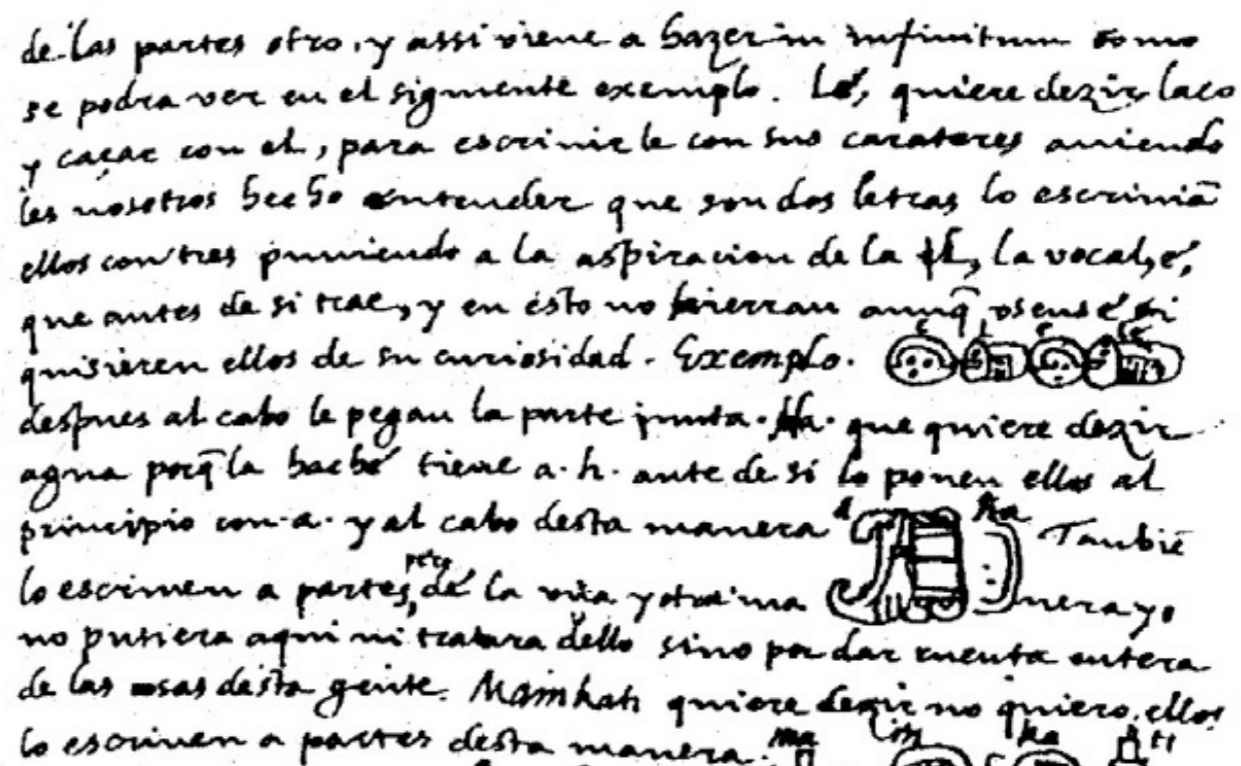 de las partes otro, y assi viene a hazer in infinitum como
se podra ver en el siguiente exemplo. Lé, quiere dezir laço
y caçar con el, para escrivirle con sus carateres aviendo
les nosotros hecho entender que son dos letras lo escriviã
ellos con tres puniendo a la aspiracion de la l, la vocal, é,
que antes de si trae, y en esto no hierran aunq̃ usense si
quisieren ellos de su curiosidad. Exemplo. e l e le
despues al cabo le pegan la parte junta. Ha. que quiere dezir
agua porq̃ la hache tiene a. h. ante de si lo ponen ellos al
principio con a. y al cabo desta manera a ha Tambiẽ
lo escriven a partes, pero de la una y otra ma nera yo
no pusiera aqui ni tratara dello sino por dar cuenta entera
de las cosas desta gente. Mainkati quiere dezir no quiero, ellos
lo escriven a partes desta manera. ma i n ka ti